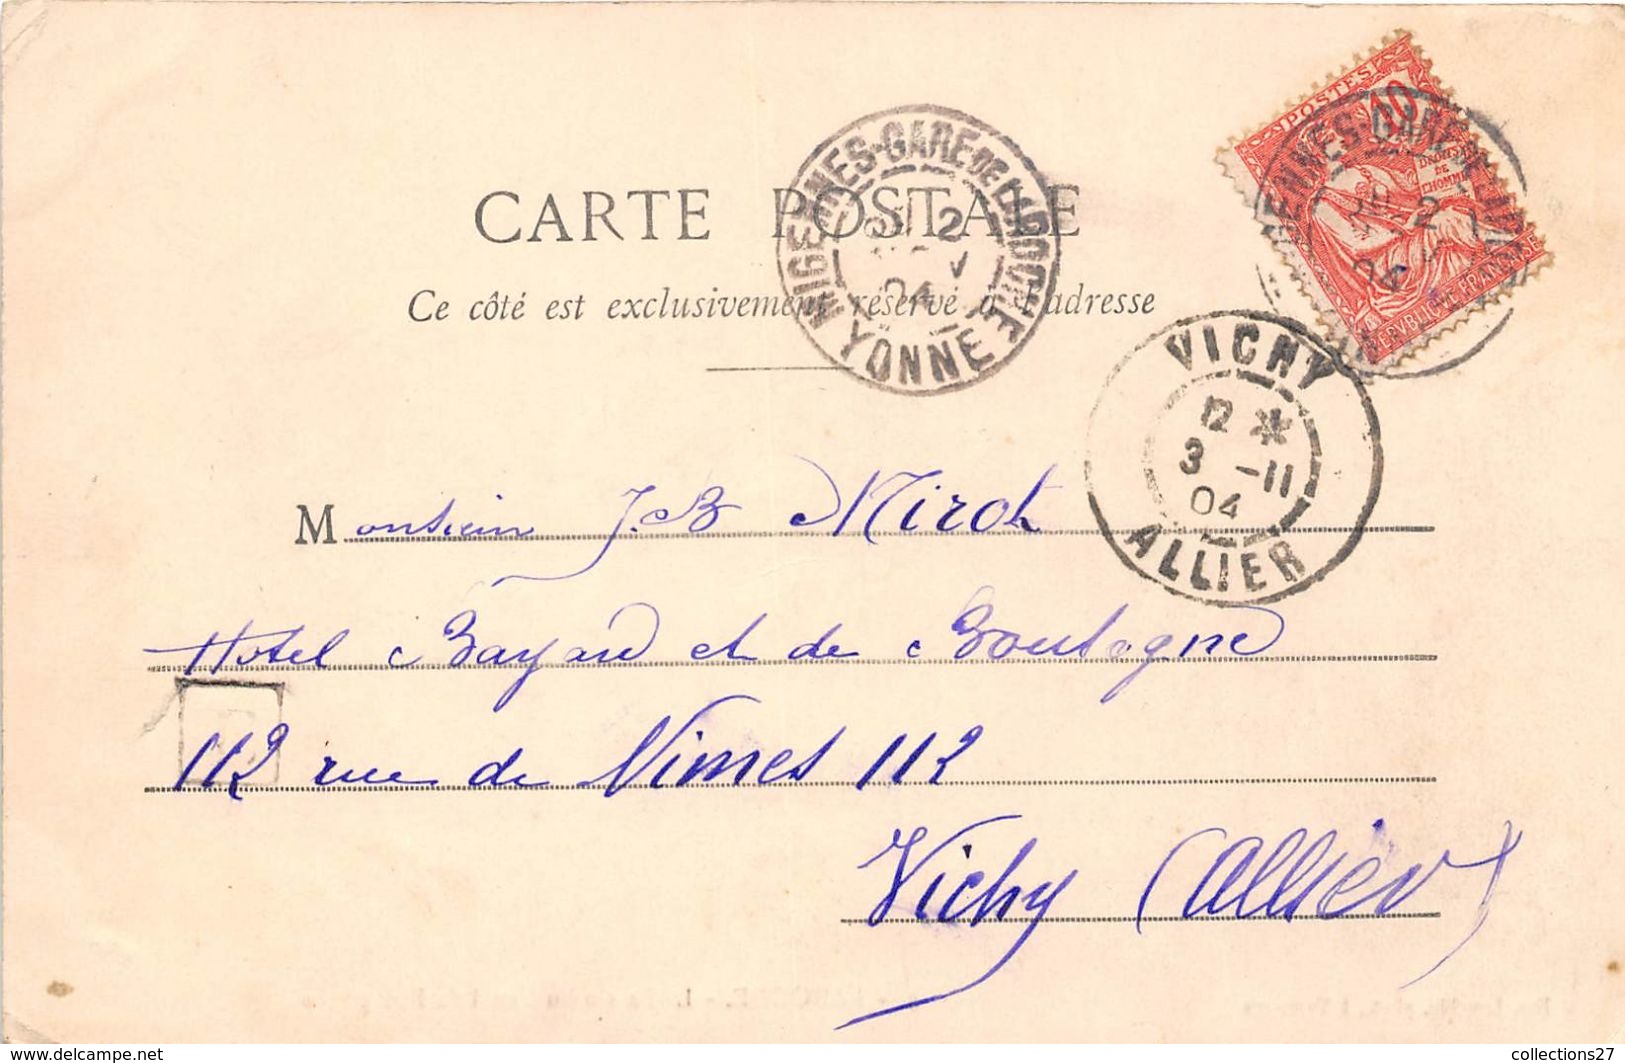 CARTE POSTALE
Ce côté est exclusivement réservé à l'adresse
MIGENNES-GARE DE LAROCHE
2
04
YONNE
POSTES
10
DROITS
DE
L'HOMME
REPVBLIQVE FRANÇAISE
2
04
VICHY
12 *
3 -11
04
ALLIER
Monsieur J.B Mirot
Hotel Bayard et de Boulogne
112 rue de Nimes 112
Vichy (Allier)
collections27